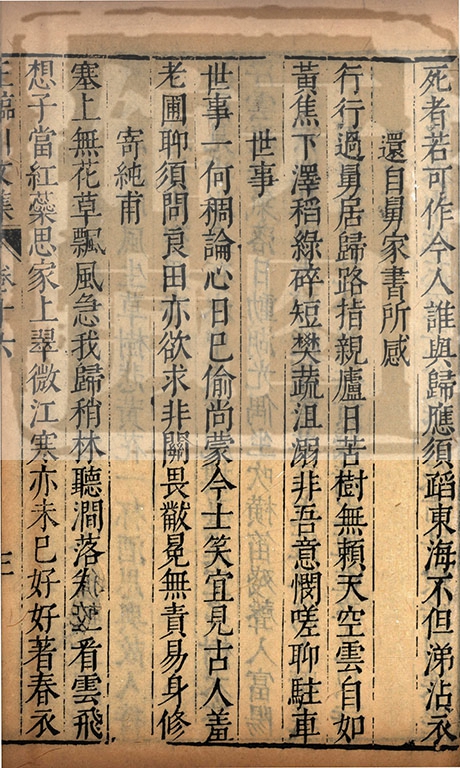 死者若可作今人誰與歸應須蹈東海不但涕沾衣
還自舅家書所感
行行過舅居歸路指親廬日苦樹無賴天空雲自如
黃焦下澤稻綠碎短樊蔬沮溺非吾意憫嗟聊駐車
世事
世事一何稠論心日已偷尚蒙今士笑宜見古人羞
老圃聊須問良田亦欲求非關畏黻冕無責易身修
寄純甫
塞上無花草飄風急我歸稍林聽澗落看雲飛
想子當紅蕊思家上翠微江寒亦未已好好著春衣
王臨川文集 卷十六 三